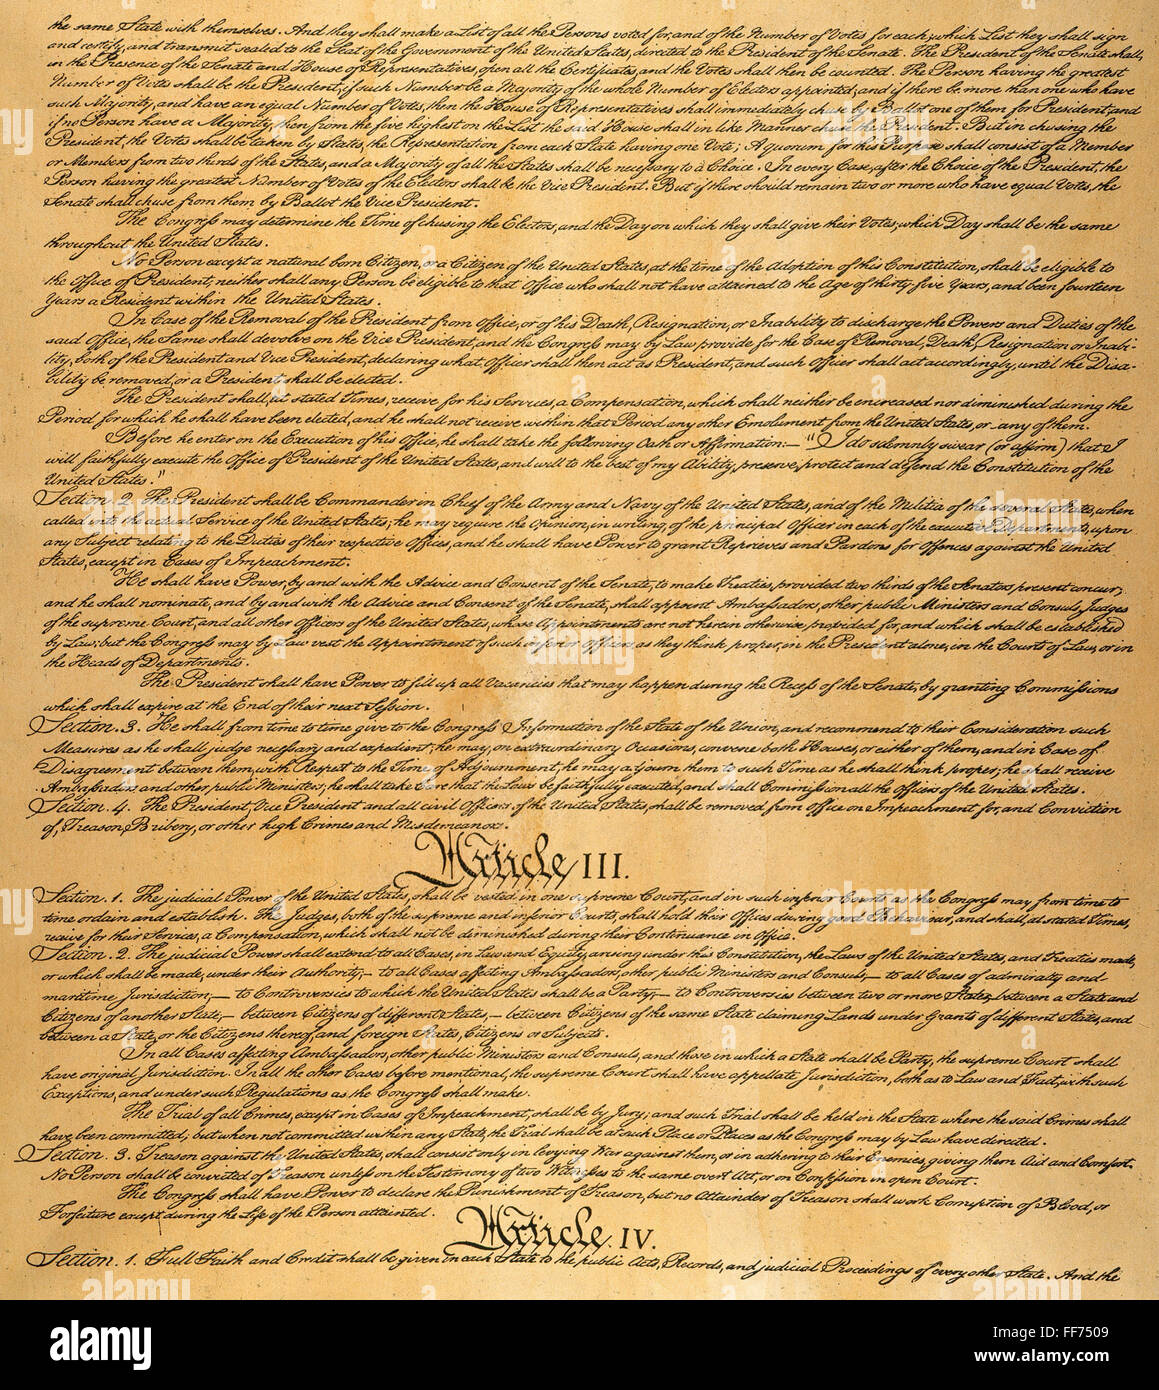 the same State with themselves. And they shall make a List of all the Persons voted for, and of the Number of Votes for each; which List they shall sign
and certify, and transmit sealed to the Seat of the Government of the United States, directed to the President of the Senate. The President of the Senate shall,
in the Presence of the Senate and House of Representatives, open all the Certificates, and the Votes shall then be counted. The Person having the greatest
Number of Votes shall be the President, if such Number be a Majority of the whole Number of Electors appointed; and if there be more than one who have
such Majority, and have an equal Number of Votes, then the House of Representatives shall immediately chuse by Ballot one of them for President; and
if no Person have a Majority, then from the five highest on the List the said House shall in like Manner chuse the President. But in chusing the
President, the Votes shall be taken by States, the Representation from each State having one Vote; A quorum for this Purpose shall consist of a Member
or Members from two thirds of the States, and a Majority of all the States shall be necessary to a Choice. In every Case, after the Choice of the President, the
Person having the greatest Number of Votes of the Electors shall be the Vice President. But if there should remain two or more who have equal Votes, the
Senate shall chuse from them by Ballot the Vice President.
The Congress may determine the Time of chusing the Electors, and the Day on which they shall give their Votes; which Day shall be the same
throughout the United States.
No Person except a natural born Citizen, or a Citizen of the United States, at the time of the Adoption of this Constitution, shall be eligible to
the Office of President; neither shall any Person be eligible to that Office who shall not have attained to the Age of thirty five Years, and been fourteen
Years a Resident within the United States.
In Case of the Removal of the President from Office, or of his Death, Resignation, or Inability to discharge the Powers and Duties of the
said Office, the Same shall devolve on the Vice President, and the Congress may by Law provide for the Case of Removal, Death, Resignation or Inabi-
lity, both of the President and Vice President, declaring what Officer shall then act as President, and such Officer shall act accordingly, until the Disa-
bility be removed, or a President shall be elected.
The President shall, at stated Times, receive for his Services, a Compensation, which shall neither be encreased nor diminished during the
Period for which he shall have been elected, and he shall not receive within that Period any other Emolument from the United States, or any of them.
Before he enter on the Execution of his Office, he shall take the following Oath or Affirmation:— "I do solemnly swear (or affirm) that I
will faithfully execute the Office of President of the United States, and will to the best of my Ability, preserve, protect and defend the Constitution of the
United States."
Section. 2. The President shall be Commander in Chief of the Army and Navy of the United States, and of the Militia of the several States, when
called into the actual Service of the United States; he may require the Opinion, in writing, of the principal Officer in each of the executive Departments, upon
any Subject relating to the Duties of their respective Offices, and he shall have Power to grant Reprieves and Pardons for Offences against the United
States, except in Cases of Impeachment.
He shall have Power, by and with the Advice and Consent of the Senate, to make Treaties, provided two thirds of the Senators present concur;
and he shall nominate, and by and with the Advice and Consent of the Senate, shall appoint Ambassadors, other public Ministers and Consuls, Judges
of the supreme Court, and all other Officers of the United States, whose Appointments are not herein otherwise provided for, and which shall be established
by Law: but the Congress may by Law vest the Appointment of such inferior Officers, as they think proper, in the President alone, in the Courts of Law, or in
the Heads of Departments.
The President shall have Power to fill up all Vacancies that may happen during the Recess of the Senate, by granting Commissions
which shall expire at the End of their next Session.
Section. 3. He shall from time to time give to the Congress Information of the State of the Union, and recommend to their Consideration such
Measures as he shall judge necessary and expedient; he may, on extraordinary Occasions, convene both Houses, or either of them, and in Case of
Disagreement between them, with Respect to the Time of Adjournment, he may adjourn them to such Time as he shall think proper; he shall receive
Ambassadors and other public Ministers; he shall take Care that the Laws be faithfully executed, and shall Commission all the Officers of the United States.
Section. 4. The President, Vice President and all civil Officers of the United States, shall be removed from Office on Impeachment for, and Conviction
of, Treason, Bribery, or other high Crimes and Misdemeanors.
Article III.
Section. 1. The judicial Power of the United States, shall be vested in one supreme Court, and in such inferior Courts as the Congress may from time to
time ordain and establish. The Judges, both of the supreme and inferior Courts, shall hold their Offices during good Behaviour, and shall, at stated Times,
receive for their Services, a Compensation, which shall not be diminished during their Continuance in Office.
Section. 2. The judicial Power shall extend to all Cases, in Law and Equity, arising under this Constitution, the Laws of the United States, and Treaties made,
or which shall be made, under their Authority;— to all Cases affecting Ambassadors, other public Ministers and Consuls;— to all Cases of admiralty and
maritime Jurisdiction;— to Controversies to which the United States shall be a Party;— to Controversies between two or more States;— between a State and
Citizens of another State;— between Citizens of different States,— between Citizens of the same State claiming Lands under Grants of different States, and
between a State, or the Citizens thereof, and foreign States, Citizens or Subjects.
In all Cases affecting Ambassadors, other public Ministers and Consuls, and those in which a State shall be Party, the supreme Court shall
have original Jurisdiction. In all the other Cases before mentioned, the supreme Court shall have appellate Jurisdiction, both as to Law and Fact, with such
Exceptions, and under such Regulations as the Congress shall make.
The Trial of all Crimes, except in Cases of Impeachment, shall be by Jury; and such Trial shall be held in the State where the said Crimes shall
have been committed; but when not committed within any State, the Trial shall be at such Place or Places as the Congress may by Law have directed.
Section. 3. Treason against the United States, shall consist only in levying War against them, or in adhering to their Enemies, giving them Aid and Comfort.
No Person shall be convicted of Treason unless on the Testimony of two Witnesses to the same overt Act, or on Confession in open Court.
The Congress shall have Power to declare the Punishment of Treason, but no Attainder of Treason shall work Corruption of Blood, or
Forfeiture except during the Life of the Person attainted.
Article. IV.
Section. 1. Full Faith and Credit shall be given in each State to the public Acts, Records, and judicial Proceedings of every other State. And the
alamy
Image ID: FF7509
www.alamy.com